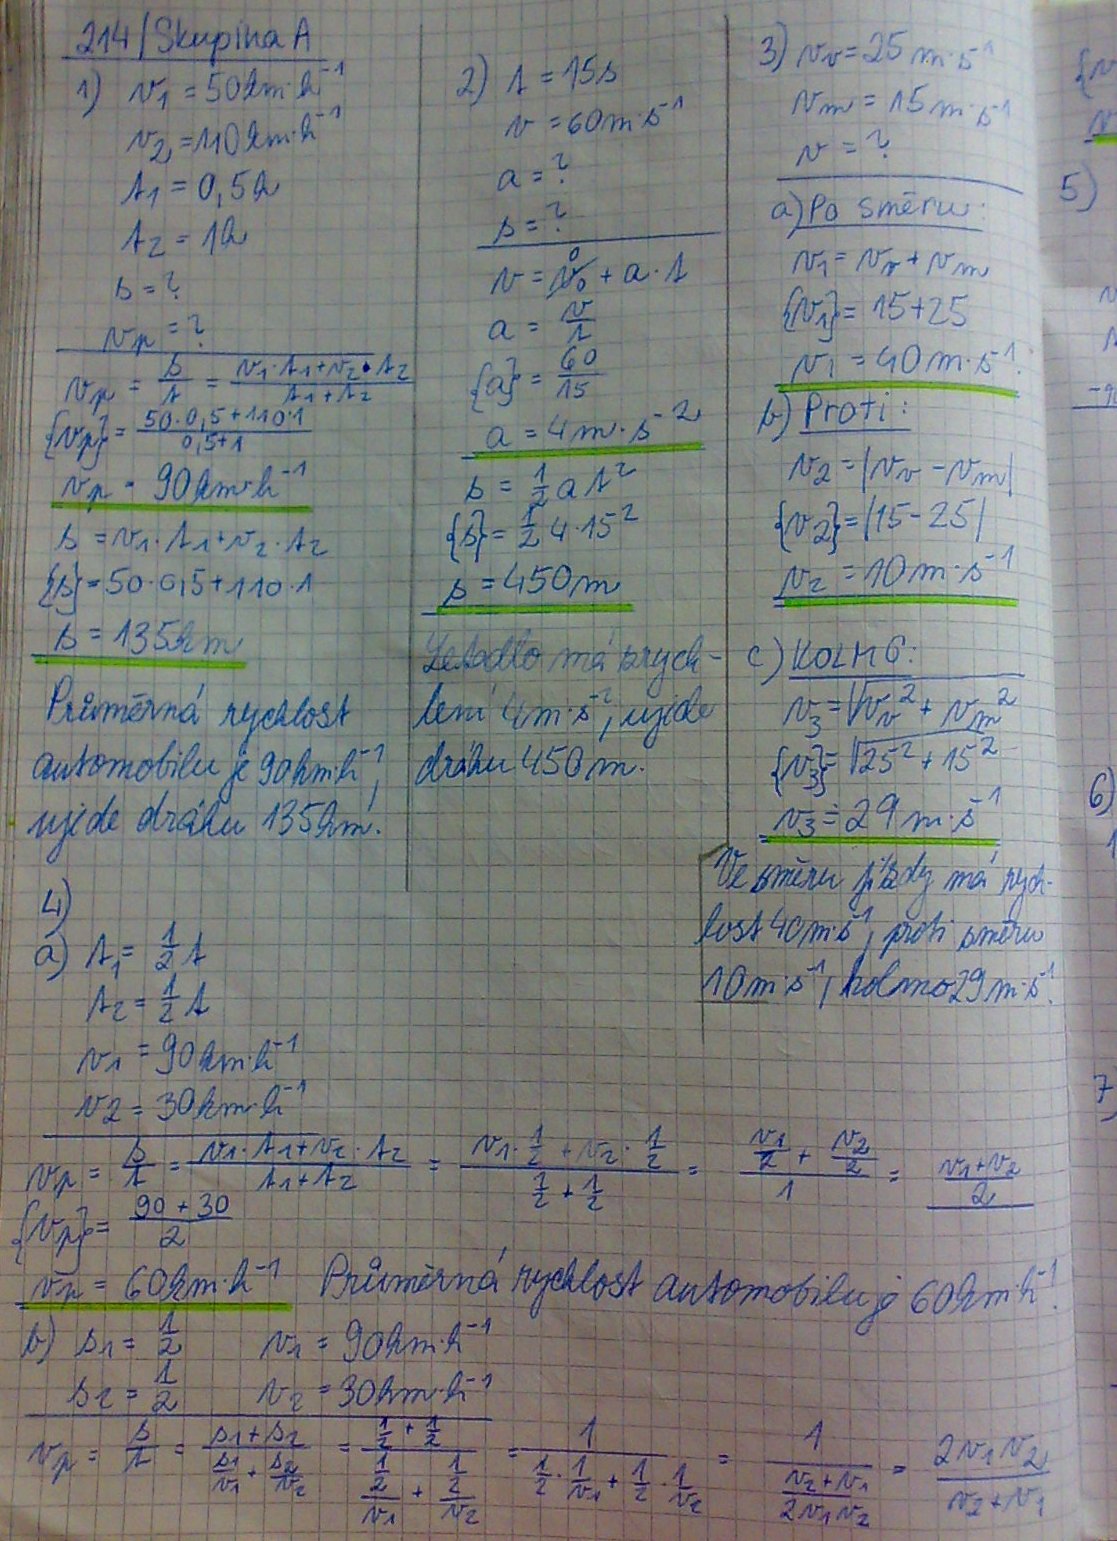 214/Skupina A
1) v₁ = 50km·h⁻¹
v₂ = 110km·h⁻¹
t₁ = 0,5h
t₂ = 1h
s = ?
vₚ = ?
vₚ = s/t = (v₁·t₁+v₂·t₂)/(t₁+t₂)
{vₚ} = (50·0,5+110·1)/(0,5+1)
vₚ = 90km·h⁻¹
s = v₁·t₁+v₂·t₂
{s} = 50·0,5+110·1
s = 135km
Průměrná rychlost
automobilu je 90km·h⁻¹,
ujede dráhu 135km.
2) t = 15s
v = 60m·s⁻¹
a = ?
s = ?
0
v = v₀ + a·t
a = v/t
{a} = 60/15
a = 4m·s⁻²
s = 1/2 a t²
{s} = 1/2 4·15²
s = 450m
Letadlo má zrych-
lení 4m·s⁻², ujede
dráhu 450m.
3) vᵥ = 25m·s⁻¹
vₘ = 15m·s⁻¹
v = ?
a) Po směru:
v₁ = vᵥ + vₘ
{v₁} = 15+25
v₁ = 40m·s⁻¹
b) Proti:
v₂ = |vᵥ - vₘ|
{v₂} = |15-25|
v₂ = 10m·s⁻¹
c) KOLMO:
v₃ = √(vᵥ² + vₘ²)
{v₃} = √(25² + 15²)
v₃ ≐ 29m·s⁻¹
Ve směru jízdy má rych-
lost 40m·s⁻¹, proti směru
10m·s⁻¹, kolmo 29m·s⁻¹.
4)
a) t₁ = 1/2 t
t₂ = 1/2 t
v₁ = 90km·h⁻¹
v₂ = 30km·h⁻¹
vₚ = s/t = (v₁·t₁+v₂·t₂)/(t₁+t₂) = (v₁·1/2 + v₂·1/2)/(1/2 + 1/2) = (v₁/2 + v₂/2)/1 = (v₁+v₂)/2
{vₚ} = (90+30)/2
vₚ = 60km·h⁻¹ Průměrná rychlost automobilu je 60km·h⁻¹.
b) s₁ = 1/2 v₁ = 90km·h⁻¹
s₂ = 1/2 v₂ = 30km·h⁻¹
vₚ = s/t = (s₁+s₂)/(s₁/v₁ + s₂/v₂) = (1/2 + 1/2)/((1/2)/v₁ + (1/2)/v₂) = 1/(1/2·1/v₁ + 1/2·1/v₂) = 1/((v₂+v₁)/(2v₁v₂)) = 2v₁v₂/(v₂+v₁)
5)
6)
7)